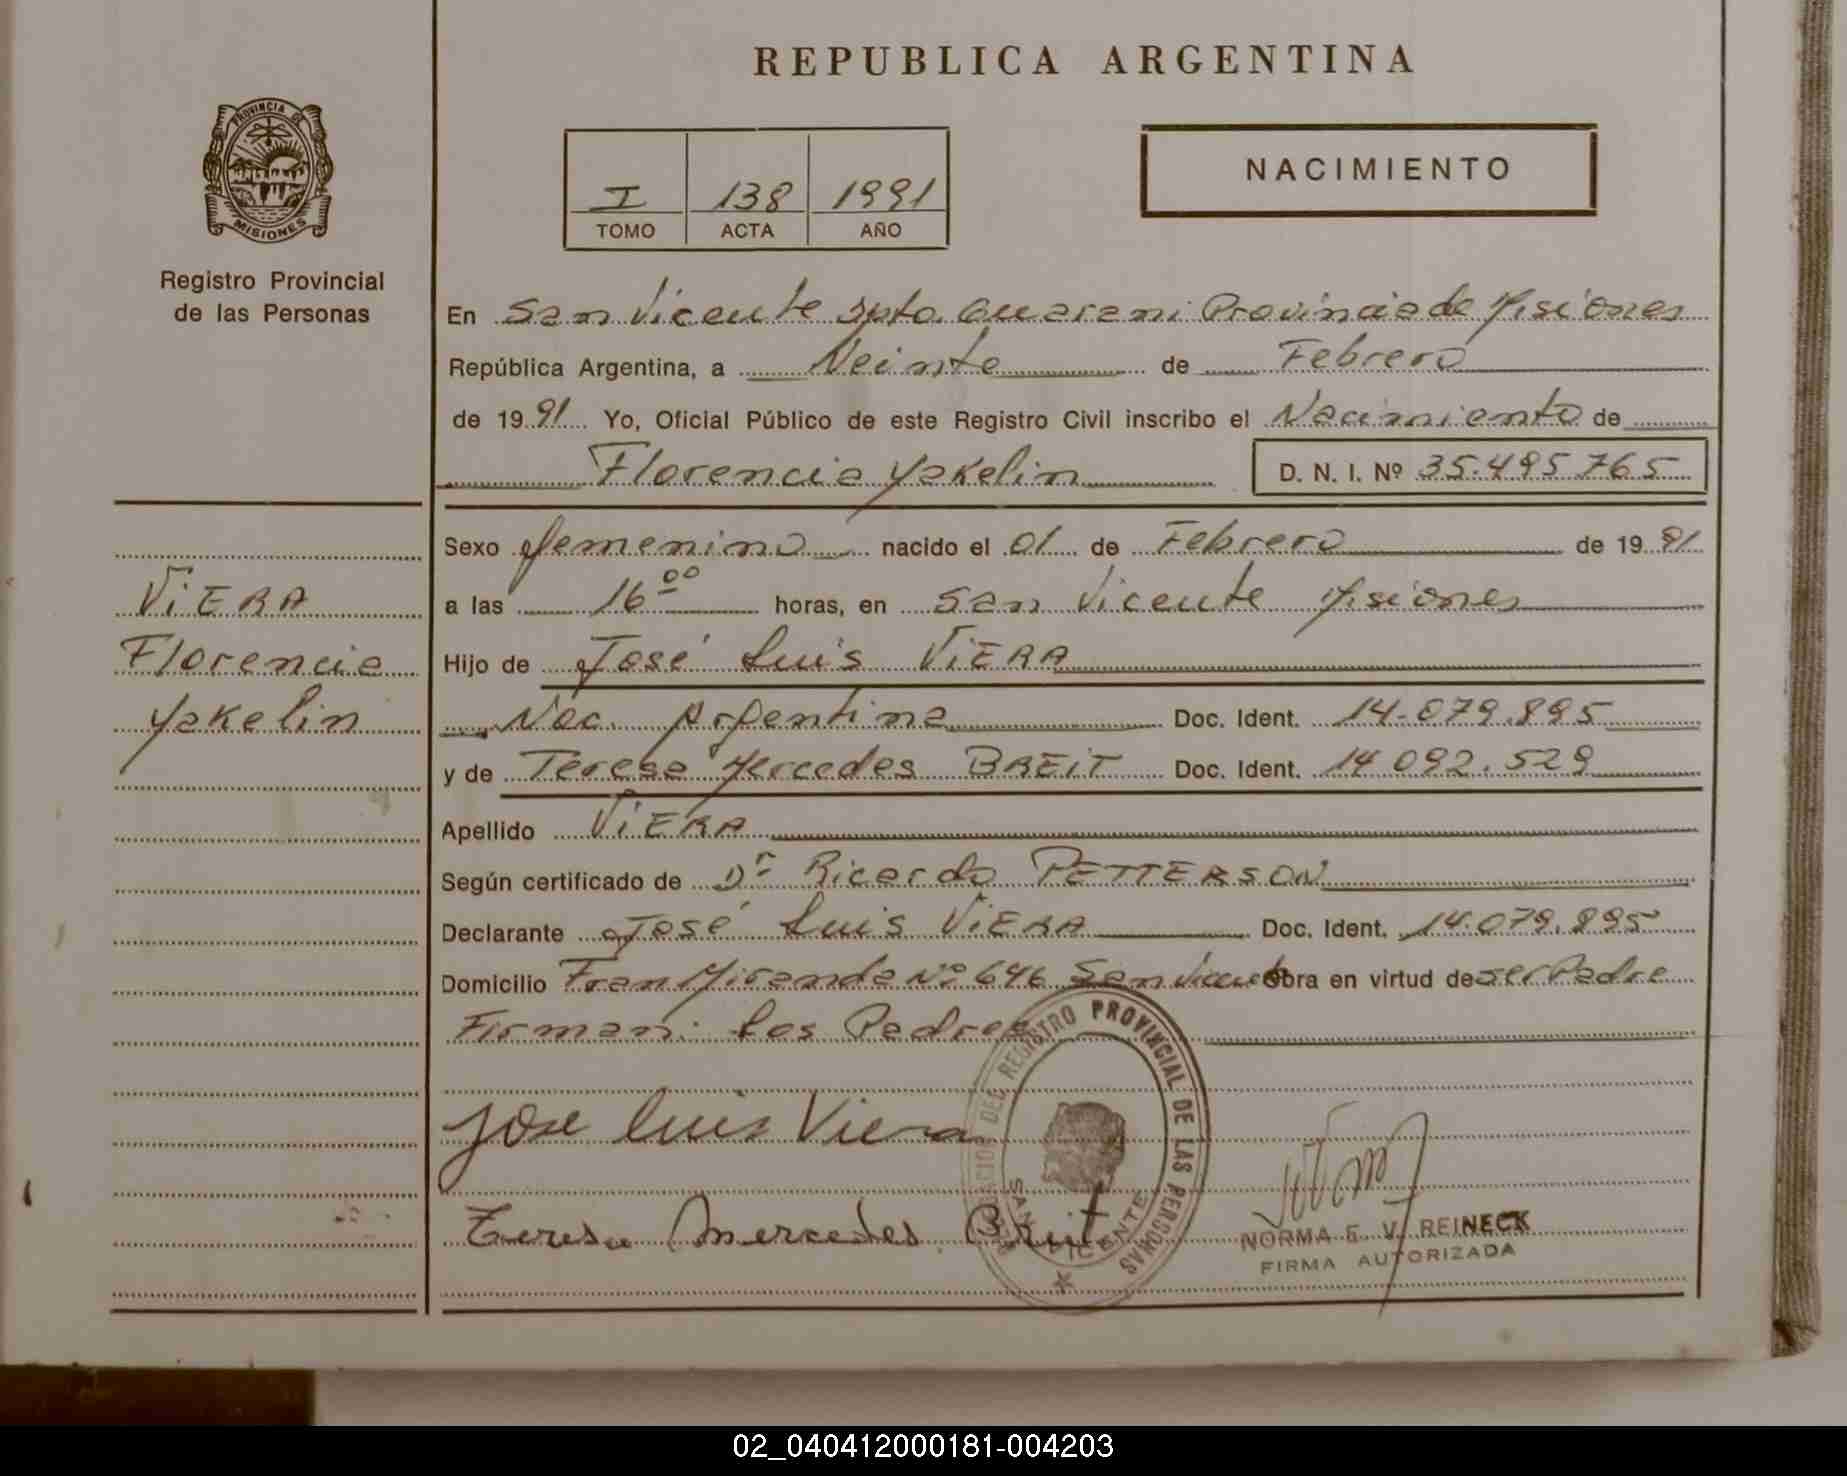 REPUBLICA ARGENTINA
PROVINCIA DE
MISIONES
Registro Provincial
de las Personas
I 138 1991
TOMO ACTA AÑO
NACIMIENTO
En San Vicente Dpto. Guarani Provincia de Misiones
República Argentina, a Veinte de Febrero
de 1991 Yo, Oficial Público de este Registro Civil inscribo el Nacimiento de
Florencia Yakelin D. N. I. Nº 35.495.765
VIERA
Florencia
Yakelin
Sexo femenino nacido el 01 de Febrero de 1991
a las 16 00 horas, en San Vicente Misiones
Hijo de José Luis VIERA
Nac. Argentina Doc. Ident. 14.079.895
y de Teresa Mercedes BREIT Doc. Ident. 14.092.529
Apellido VIERA
Según certificado de Dr Ricardo PETTERSON
Declarante José Luis VIERA Doc. Ident. 14.079.895
Domicilio Fran Miranda Nº 646 San Vicente Obra en virtud de ser Padre
Firman: Los Padres
Jose Luis Viera
Teresa Mercedes Breit
DEL REGISTRO PROVINCIAL DE LAS PERSONAS
SAN VICENTE
NORMA E. V. REINECK
FIRMA AUTORIZADA
02_040412000181-004203